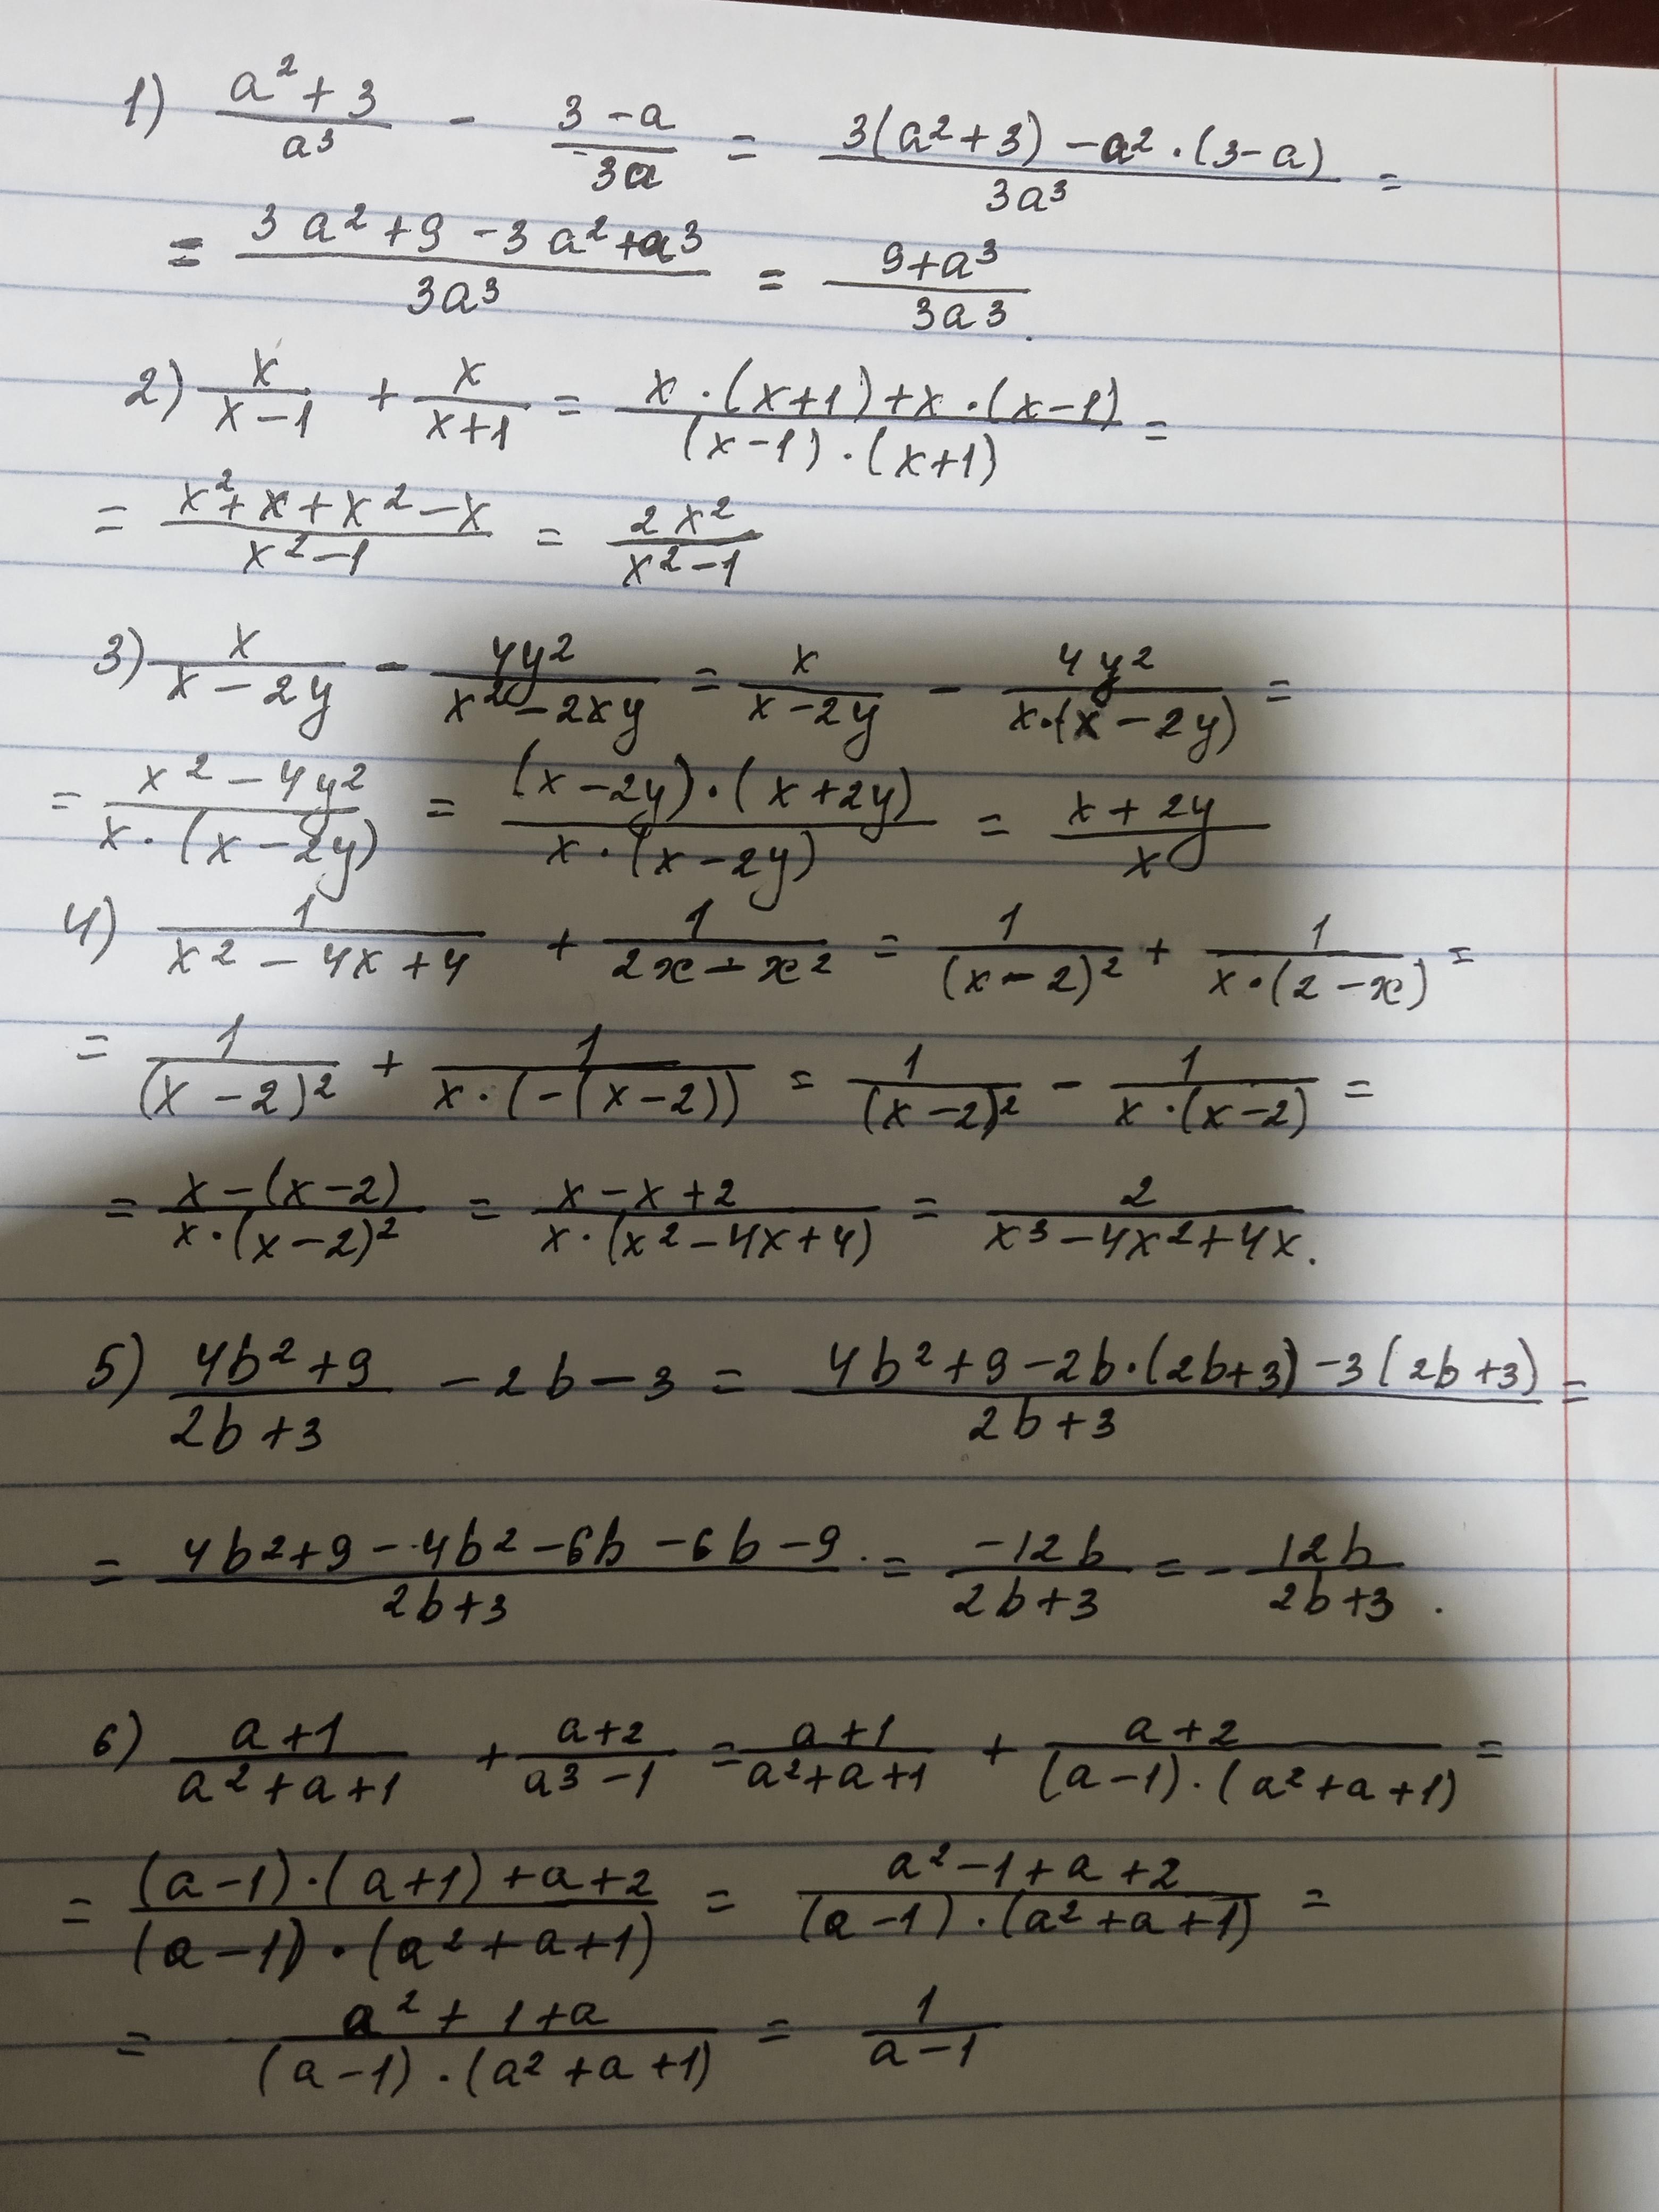 1) (a² + 3)/a³ - (3 - a)/3a = (3(a² + 3) - a² · (3 - a))/3a³ =
= (3a² + 9 - 3a² + a³)/3a³ = (9 + a³)/3a³.
2) x/(x - 1) + x/(x + 1) = (x · (x + 1) + x · (x - 1))/((x - 1) · (x + 1)) =
= (x² + x + x² - x)/(x² - 1) = 2x²/(x² - 1)
3) x/(x - 2y) - 4y²/(x² - 2xy) = x/(x - 2y) - 4y²/(x · (x - 2y)) =
= (x² - 4y²)/(x · (x - 2y)) = ((x - 2y) · (x + 2y))/(x · (x - 2y)) = (x + 2y)/x
4) 1/(x² - 4x + 4) + 1/(2x - x²) = 1/(x - 2)² + 1/(x · (2 - x)) =
= 1/(x - 2)² + 1/(x · (-(x - 2)) = 1/(x - 2)² - 1/(x · (x - 2)) =
= (x - (x - 2))/(x · (x - 2)²) = (x - x + 2)/(x · (x² - 4x + 4)) = 2/(x³ - 4x² + 4x).
5) (4b² + 9)/(2b + 3) - 2b - 3 = (4b² + 9 - 2b · (2b + 3) - 3(2b + 3))/(2b + 3) =
= (4b² + 9 - 4b² - 6b - 6b - 9)/(2b + 3) = -12b/(2b + 3) = - 12b/(2b + 3).
6) (a + 1)/(a² + a + 1) + (a + 2)/(a³ - 1) = (a + 1)/(a² + a + 1) + (a + 2)/((a - 1) · (a² + a + 1)) =
= ((a - 1) · (a + 1) + a + 2)/((a - 1) · (a² + a + 1)) = (a² - 1 + a + 2)/((a - 1) · (a² + a + 1)) =
= (a² + 1 + a)/((a - 1) · (a² + a + 1)) = 1/(a - 1)